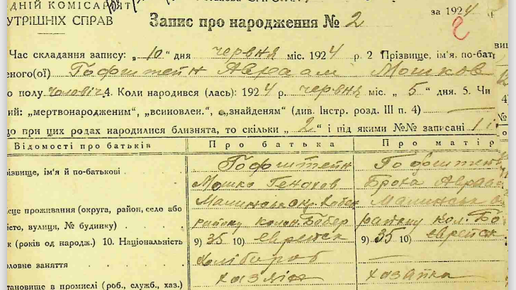 ДНІЙ КОМІСАРЯТ за 1924
УТРІШНІХ СПРАВ Запис про народження № 2
Час складання запису: „10" дня червня міс. 1924 р. 2. Прізвище, ім'я, по-бать
еного(ої) Гофштейн Авраам Мошков
го полу. чоловіч. 4. Коли народився (лась): 1924 р. червня міс. „5" дня. 5. Чи
ий: „мертвонародженим", „всиновлен.", „знайденям" (див. інстр. розд. III п. 4)
що при цих родах народилися близнята, то скільки „2" і під якими №№ записані
Відомості про батьків Про батька Про матір
прізвище, ім'я й по-батькові Гофштейн Гофштейн
Мошко Генохов Броха Авраам
сце проживання (округа, район, село або
істо, вулиця, № будинку)
району колон. Бобер району кол. Бо
к (років од народж.) 10. Національність 9) 35 10) еврейск 9) 35 10) еврейск
оловне заняття Хлібороб
тановище в промислі (роб., служб., хаз.) хазяїн хазяйка